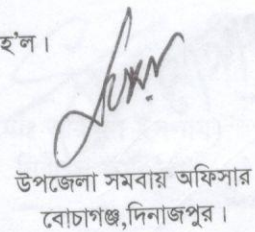 হ'ল।
উপজেলা সমবায় অফিসার
বোচাগঞ্জ,দিনাজপুর।